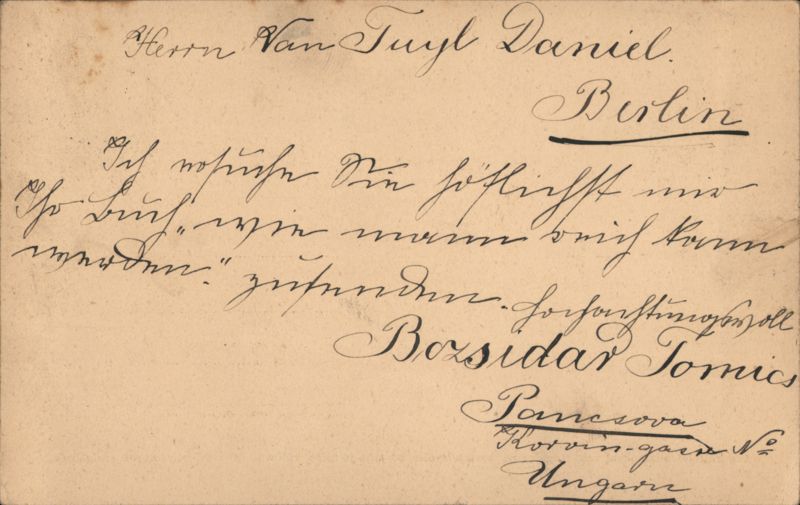 Herrn Van Tuyl Daniel.
Berlin
Ich ersuche Sie höflichst mir
Ihr Buch „wie mann reich kann
werden." zusenden. Hochachtungsvoll
Bozsidar Tomics
Pancsova
Korvin-gasse No
Ungarn